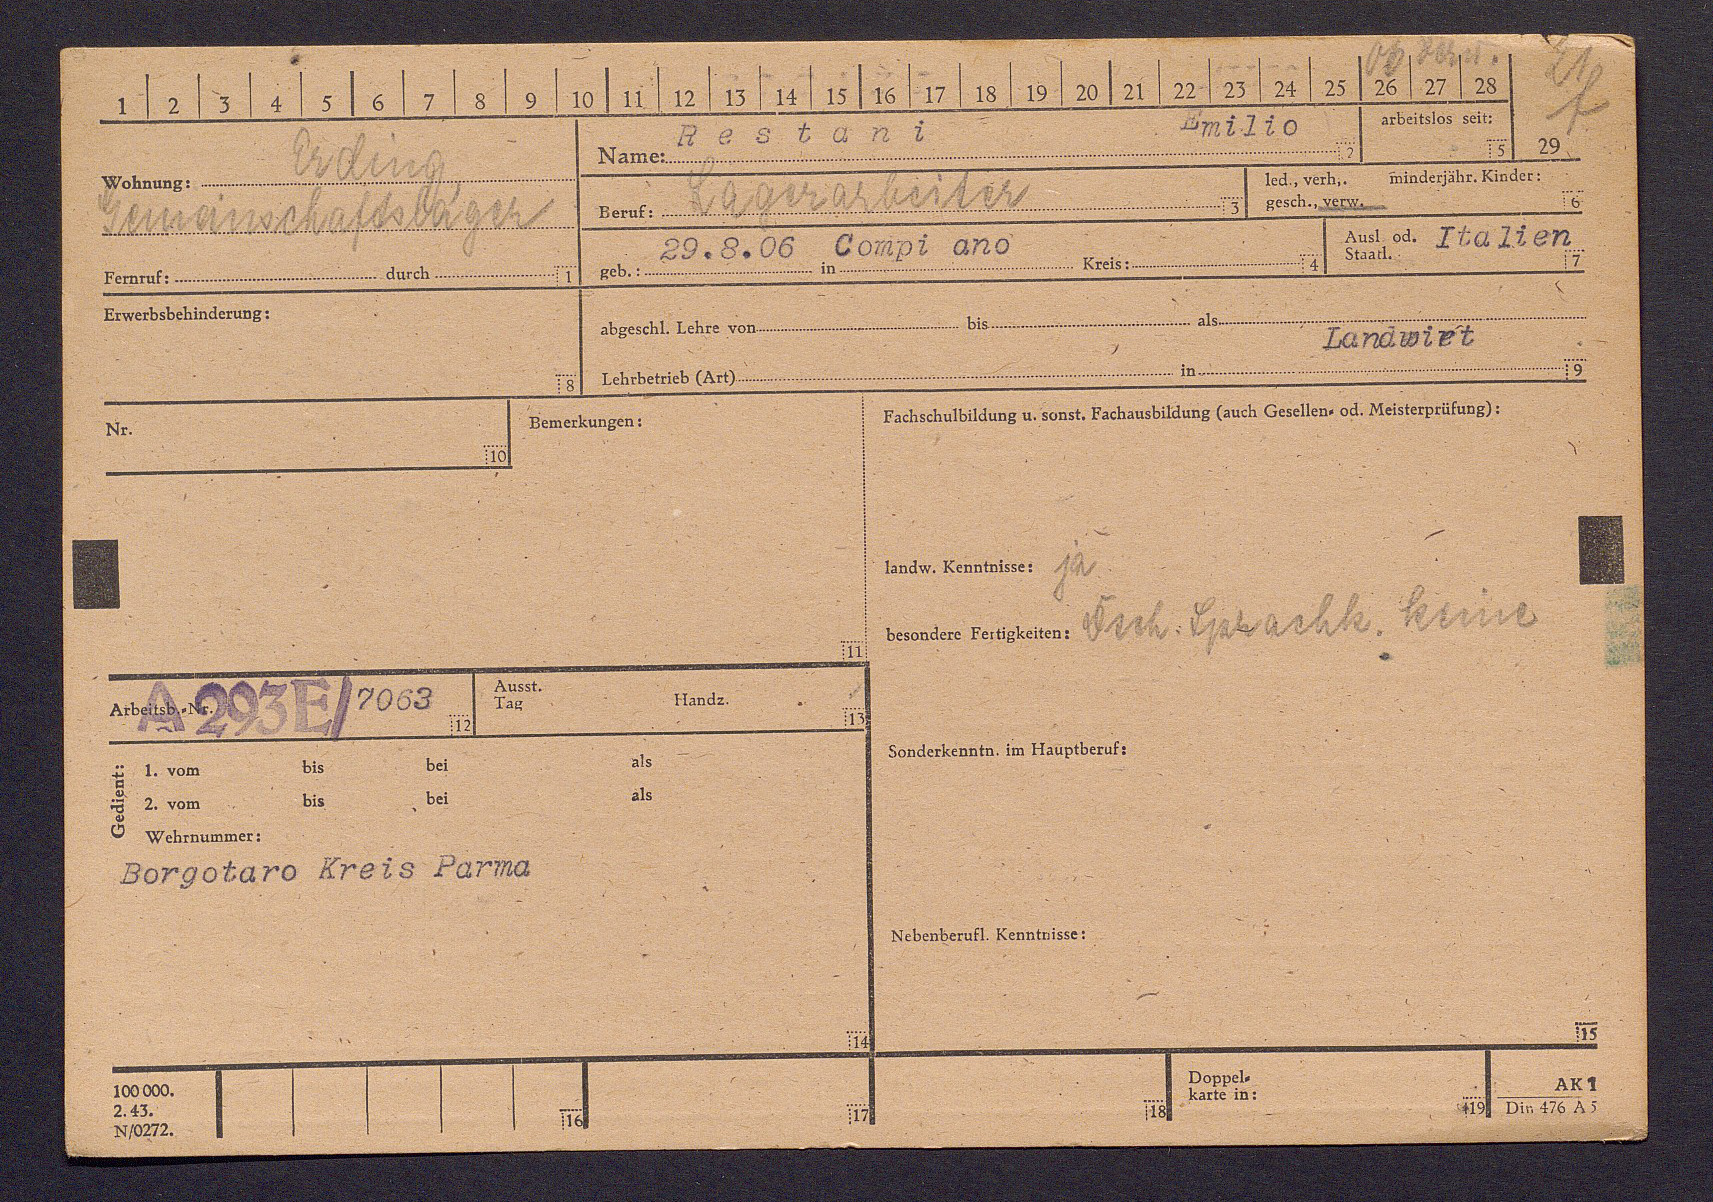 1 2 3 4 5 6 7 8 9 10 11 12 13 14 15 16 17 18 19 20 21 22 23 24 25 26 27 28
29
Wohnung: Erding
Gemeinschaftslager
Fernruf: durch 1
Name: Restani Emilio 2
arbeitslos seit: 5
Beruf: Lagerarbeiter 3
led., verh,. minderjähr. Kinder:
gesch., verw. 6
geb.: 29.8.06 in Compi ano Kreis: 4
Ausl od. Italien
Staatl. 7
Erwerbsbehinderung:
8
abgeschl. Lehre von bis als
Landwirt
Lehrbetrieb (Art) in 9
Nr.
10
Bemerkungen:
11
Fachschulbildung u. sonst. Fachausbildung (auch Gesellen- od. Meisterprüfung):
landw. Kenntnisse: ja
besondere Fertigkeiten: Dtsch. Sprachk. keine
Sonderkenntn. im Hauptberuf:
Nebenberufl. Kenntnisse:
15
Arbeitsb.-Nr. A 293E/7063 12
Ausst.
Tag Handz. 13
Gedient:
1. vom bis bei als
2. vom bis bei als
Wehrnummer:
Borgotaro Kreis Parma
14
100 000.
2. 43.
N/0272.
16
17
18
Doppel-
karte in: 19
AK 1
Din 476 A 5